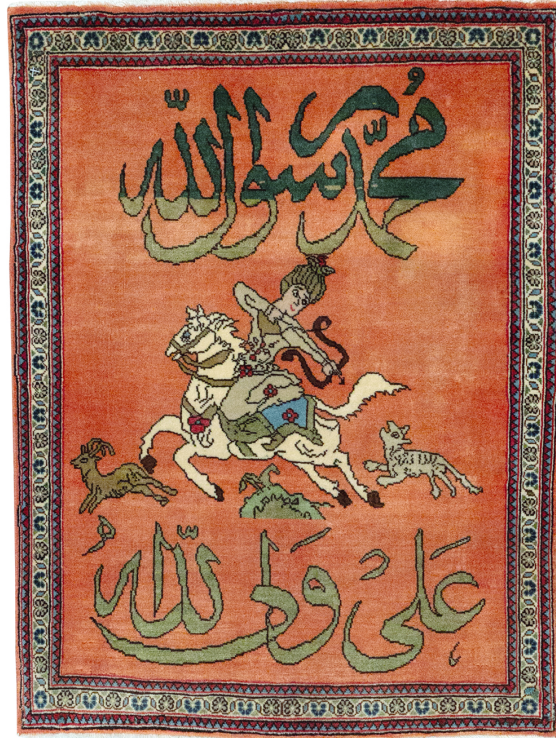 محمد رسول الله
علی ولی الله